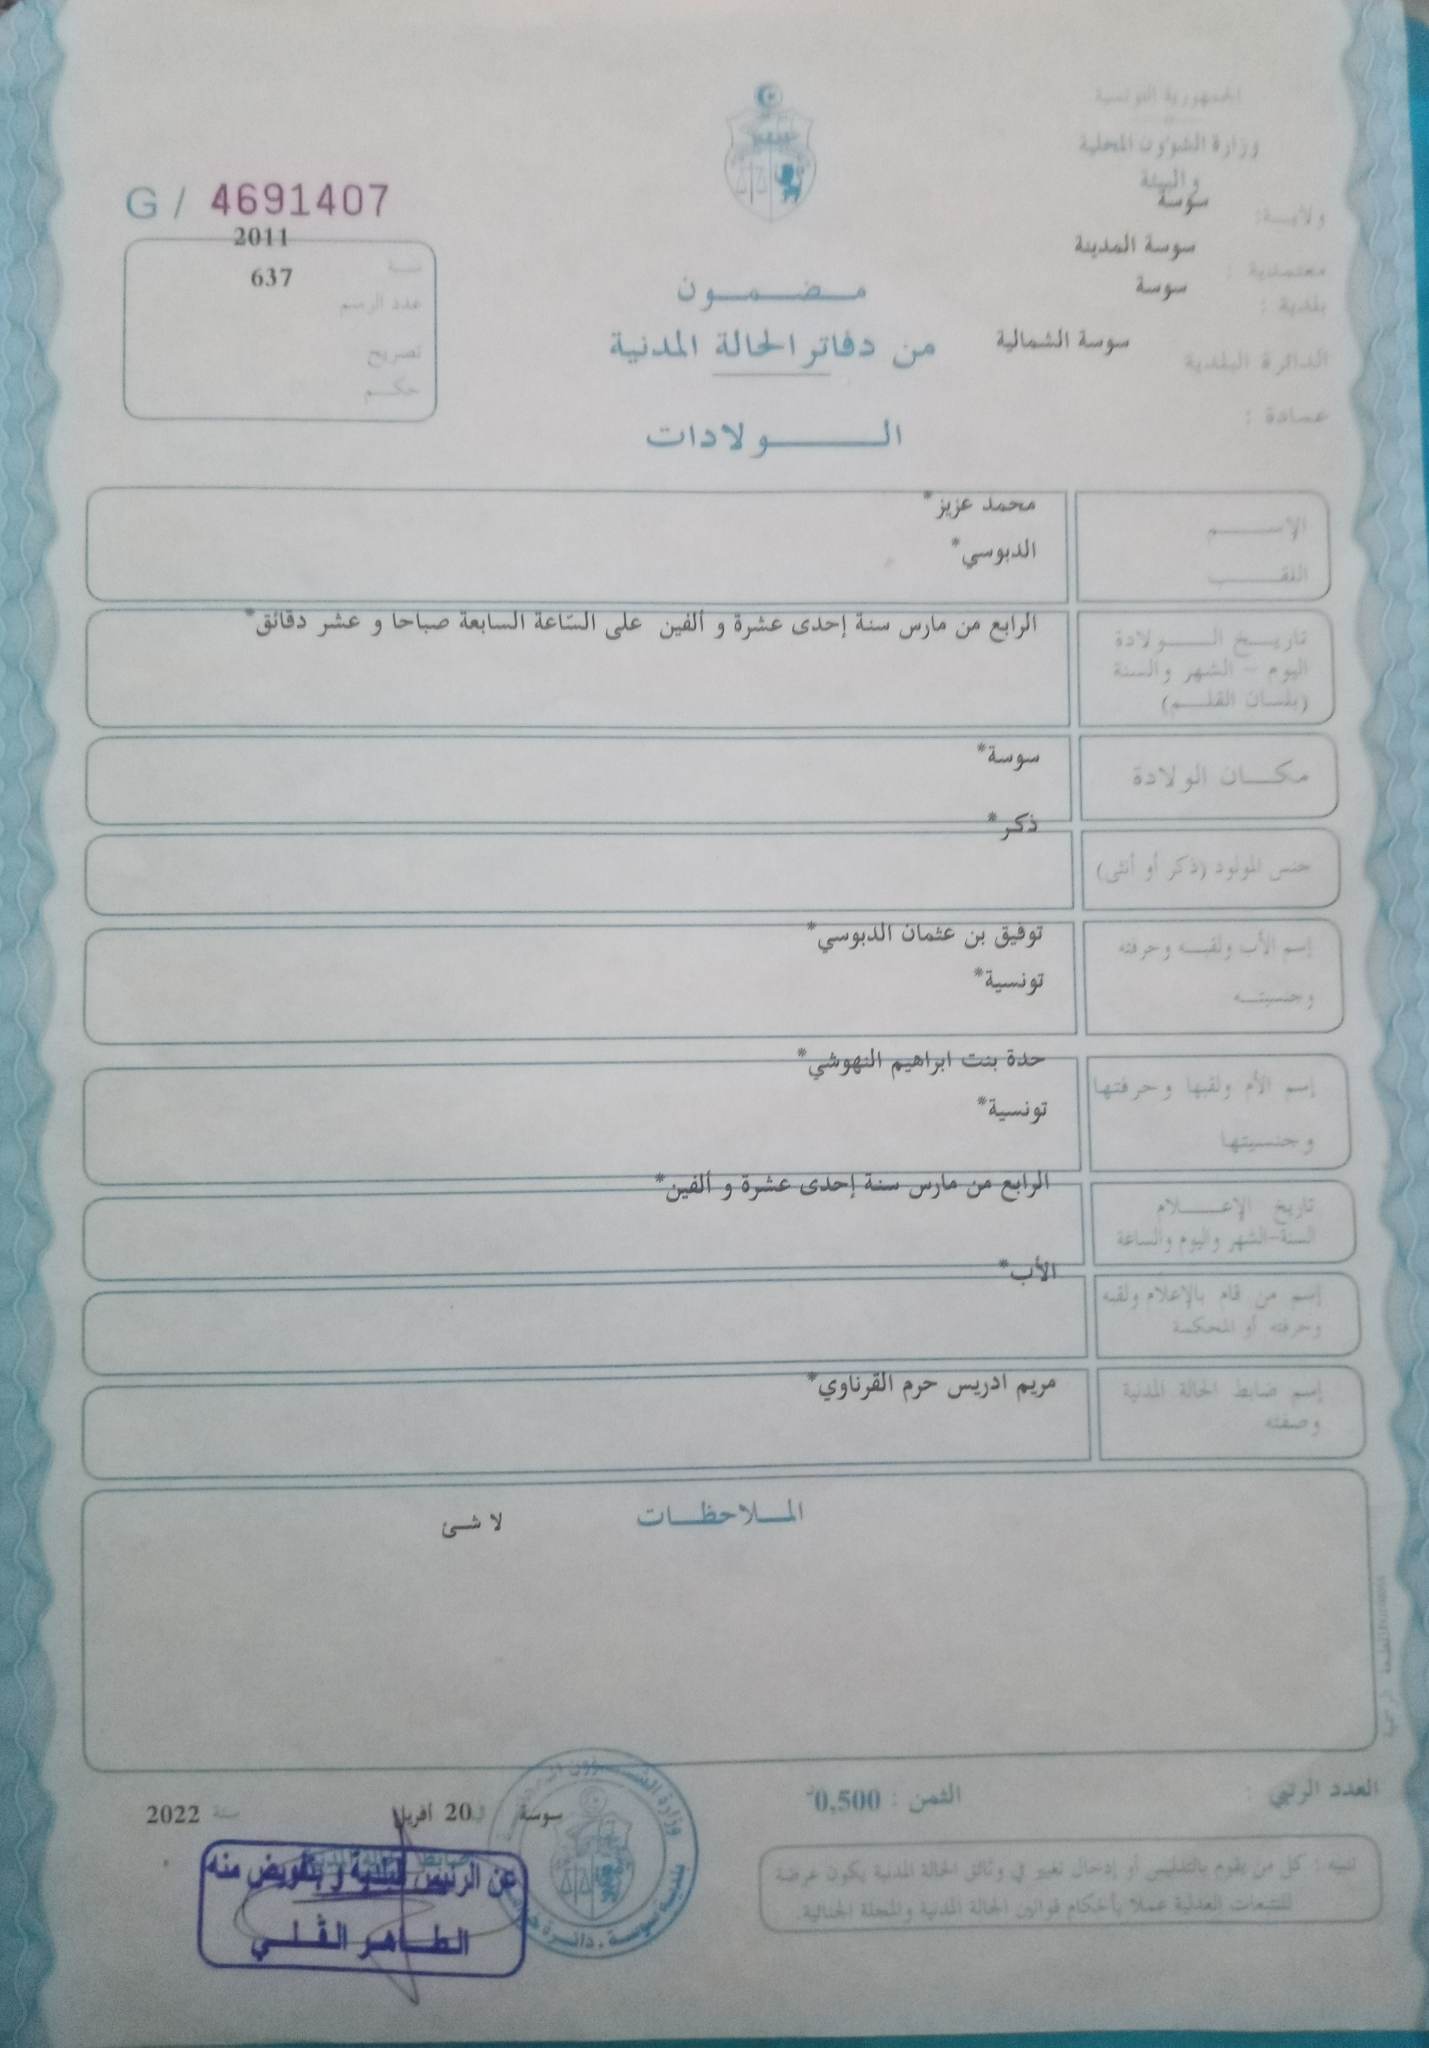 الجمهورية التونسية
وزارة الشؤون المحلية
والبيئة
ولايـة: سوسة
معتمدية : سوسة المدينة
بلدية : سوسة
الدائرة البلدية سوسة الشمالية
عمادة :
G / 4691407
سنـة 2011
عدد الرسم 637
تصريح
حكـم
مـضـمـون
من دفاتر الحالة المدنية
الـولادات
الإسـم محمد عزيز*
اللقـب الدبوسي*
تاريـخ الـولادة الرابع من مارس سنة إحدى عشرة و ألفين على السّاعة السابعة صباحا و عشر دقائق*
اليوم - الشهر والسنة
(بلسان القلـم)
مكـان الولادة سوسة*
جنس المولود (ذكر أو أنثى) ذكر*
إسم الأب ولقبـه وحرفته توفيق بن عثمان الدبوسي*
وجنسيتـه تونسية*
إسم الأم ولقبها وحرفتها حدة بنت ابراهيم النهوشي*
وجنسيتها تونسية*
تاريخ الإعـلام الرابع من مارس سنة إحدى عشرة و ألفين*
السنة-الشهر واليوم والساعة
إسم من قام بالإعلام ولقبه الأب*
وحرفته أو المحكمة
إسم ضابط الحالة المدنية مريم ادريس حرم القرناوي*
وصفته
الملاحظـات لا شئ
العدد الرتبي :
الثمن : 0,500د
سوسة في 20 أفريل سنة 2022
تنبيه : كل من يقوم بالتدليس أو إدخال تغيير في وثائق الحالة المدنية يكون عرضة
للتتبعات العدلية عملا بأحكام قوانين الحالة المدنية والمجلة الجنائية.
عن الرئيس البلدية و بتفويض منه
الطـاهـر القلـي
بلدية سوسة . دائرة